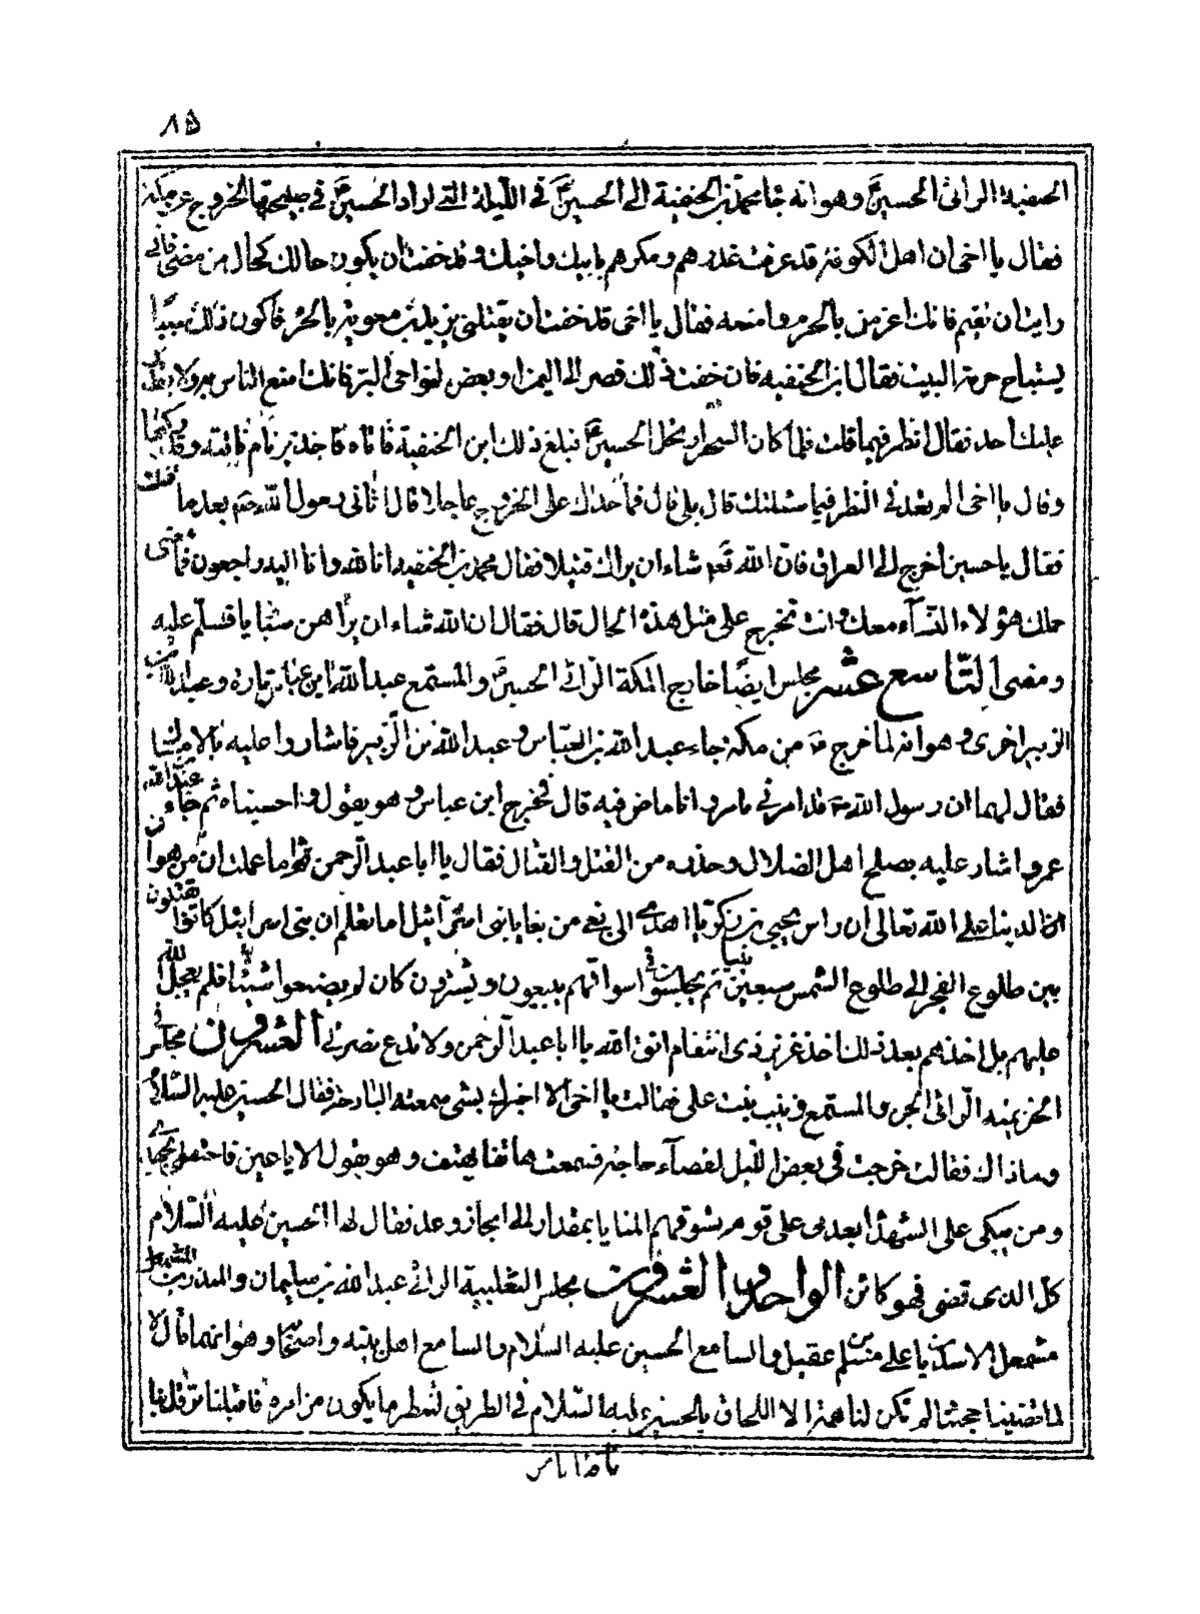 ٨٥
الحنفية الراثى الحسين ع وهو انه جاء محمد بن الحنفية الى الحسين ع فى الليلة التى اراد الحسين ع فى صبيحتها الخروج عن مكة
فقال يا اخى ان اهل الكوفة قد عرفت غدرهم ومكرهم بابيك واخيك وقد خفت ان يكون حالك كحال من مضى فان
رايت ان تقيم فانك اعز من بالحرم وامنعه فقال يا اخى قد خفت ان يقتلنى يزيد بن معوية بالحرم فاكون ذلك سببا
يستباح حرمة البيت فقال ابن الحنفية فان خفت ذلك فصر الى اليمن او بعض نواحى البر فانك امنع الناس به ولا يقدر
عليك احد فقال انظر فيما قلت فلما كان السحر ارتحل الحسين ع فبلغ ذلك ابن الحنفية فاتاه فاخذ بزمام ناقته وقد ركبها
وقال يا اخى الم تعدنى النظر فيما سئلتك قال بلى قال فما حداك على الخروج عاجلا قال اتانى رسول الله ص بعد ما فارقتك
فقال يا حسين اخرج الى العراق فان الله تعم شاء ان يراك قتيلا فقال محمد بن الحنفيه انا لله وانا اليه راجعون فما معنى
حملك هؤلاء النساء معك وانت تخرج على مثل هذه الحال قال فقال ان الله شاء ان يراهن سبايا فسلم عليه
ومضى التاسع عشر مجلس ايضا خارج المكة الراثى الحسين ع والمستمع عبد الله ابن عباس تارة وعبد الله بن
الزبير اخرى وهو انه لما خرج ع من مكة جاء عبد الله بن العباس وعبد الله بن الزبير فاشاروا عليه بالامساك
فقال لهما ان رسول الله ص قد امرنى بامر وانا ماض فيه قال فخرج ابن عباس وهو يقول واحسيناه ثم جاء عبد الله بن
عمر واشار عليه بصلح اهل الضلال وحذره من القتل والقتال فقال يا ابا عبد الرحمن اما علمت ان من هوان
الدنيا على الله تعالى ان راس يحيى بن زكريا اهدى الى بغى من بغايا بنى اسرائيل اما تعلم ان بنى اسرائيل كانوا يقتلون
بين طلوع الفجر الى طلوع الشمس سبعين نبيا ثم يجلسون فى اسواقهم يبيعون ويشترون كان لم يصنعوا شيئا فلم يعجل الله
عليهم بل اخذهم بعد ذلك اخذ عزيز ذى انتقام اتق الله يا ابا عبد الرحمن ولا تدع نصرتى العشرون مجلس فى
الخزيمية الراثى الجن والمستمع زينب بنت على فقالت يا اخى الا اخبرك بشى سمعته البارحة فقال الحسين عليه السلام
وما ذاك فقالت خرجت فى بعض الليل لقضاء حاجة فسمعت هاتفا يهتف وهو يقول الا يا عين فاحتفلى بجهد
ومن يبكى على الشهدا بعدى على قوم تسوقهم المنايا بمقدار الى انجاز وعد فقال لها الحسين عليه السلام
كل الذى قضى فهو كائن الواحد والعشرون مجلس الثعلبية الراثى عبد الله بن سليمان والمنذر بن المشمعل
الاسديان على مسلم بن عقيل والسامع الحسين عليه السلام والسامع اهل بيته واصحابه وهو انهما قالا
لما قضينا حجنا لم تكن لنا همة الا اللحاق بالحسين عليه السلام فى الطريق لننظر ما يكون من امره فاقبلنا ترقل بنا
ناقتانا